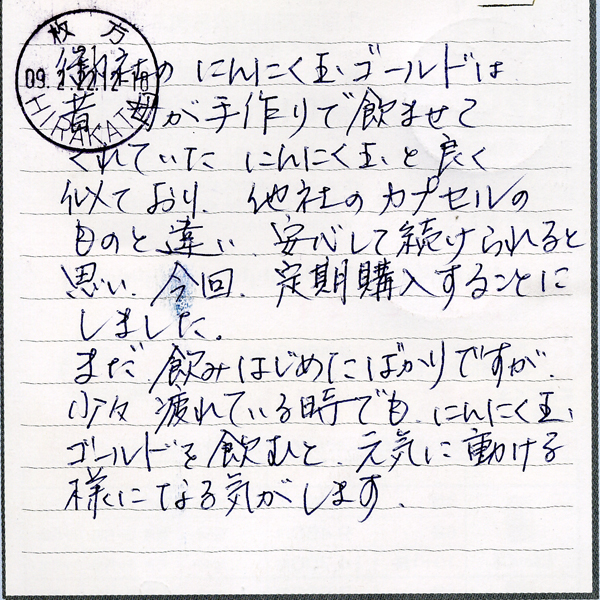 枚方
09. 2.22.12-18
HIRAKATA
御社の にんにく玉ゴールドは
昔 母が手作りで飲ませて
くれていた にんにく玉と良く
似ており、他社のカプセルの
ものと違い、安心して続けられると
思い、今回、定期購入することに
しました。
まだ、飲みはじめたばかりですが、
少々 疲れている時でも、にんにく玉
ゴールドを飲むと、元気に動ける
様になる気がします。